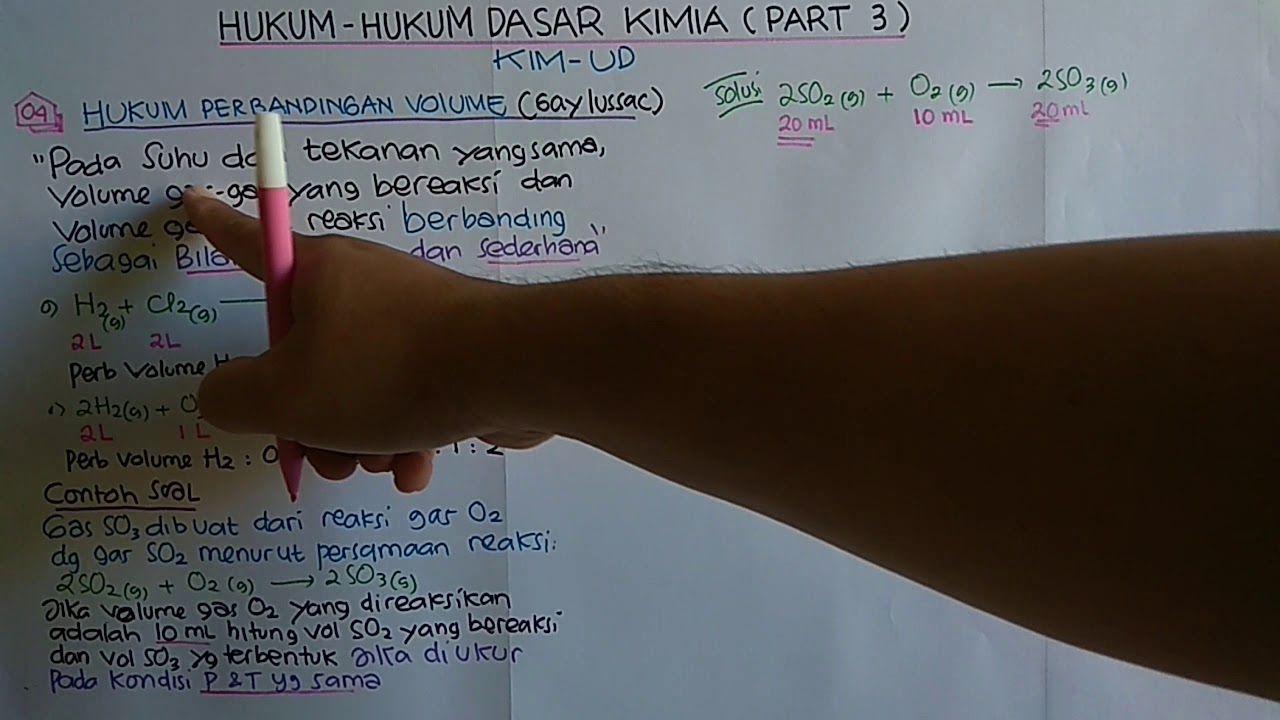 HUKUM-HUKUM DASAR KIMIA (PART 3)
KIM-UD
04 HUKUM PERBANDINGAN VOLUME (Gaylussac)
"Pada Suhu tekanan yang sama,
Volume yang bereaksi dan
Volume reaksi berbanding
Sebagai dan sederhana"
H2(g) + Cl2(g)
2L 2L
Perb Volume
2H2(g) +
2L 1L
Perb Volume H2 : : 1 : 2
Contoh Soal
Gas SO3 dibuat dari reaksi gas O2
dg gas SO2 menurut persamaan reaksi:
2SO2(g) + O2(g) → 2SO3(g)
Jika volume gas O2 yang direaksikan
adalah 10 mL hitung vol SO2 yang bereaksi
dan vol SO3 yg terbentuk jika diukur
Pada kondisi P & T yg sama
Solusi 2SO2(g) + O2(g) → 2SO3(g)
20 mL 10 mL 20 mL